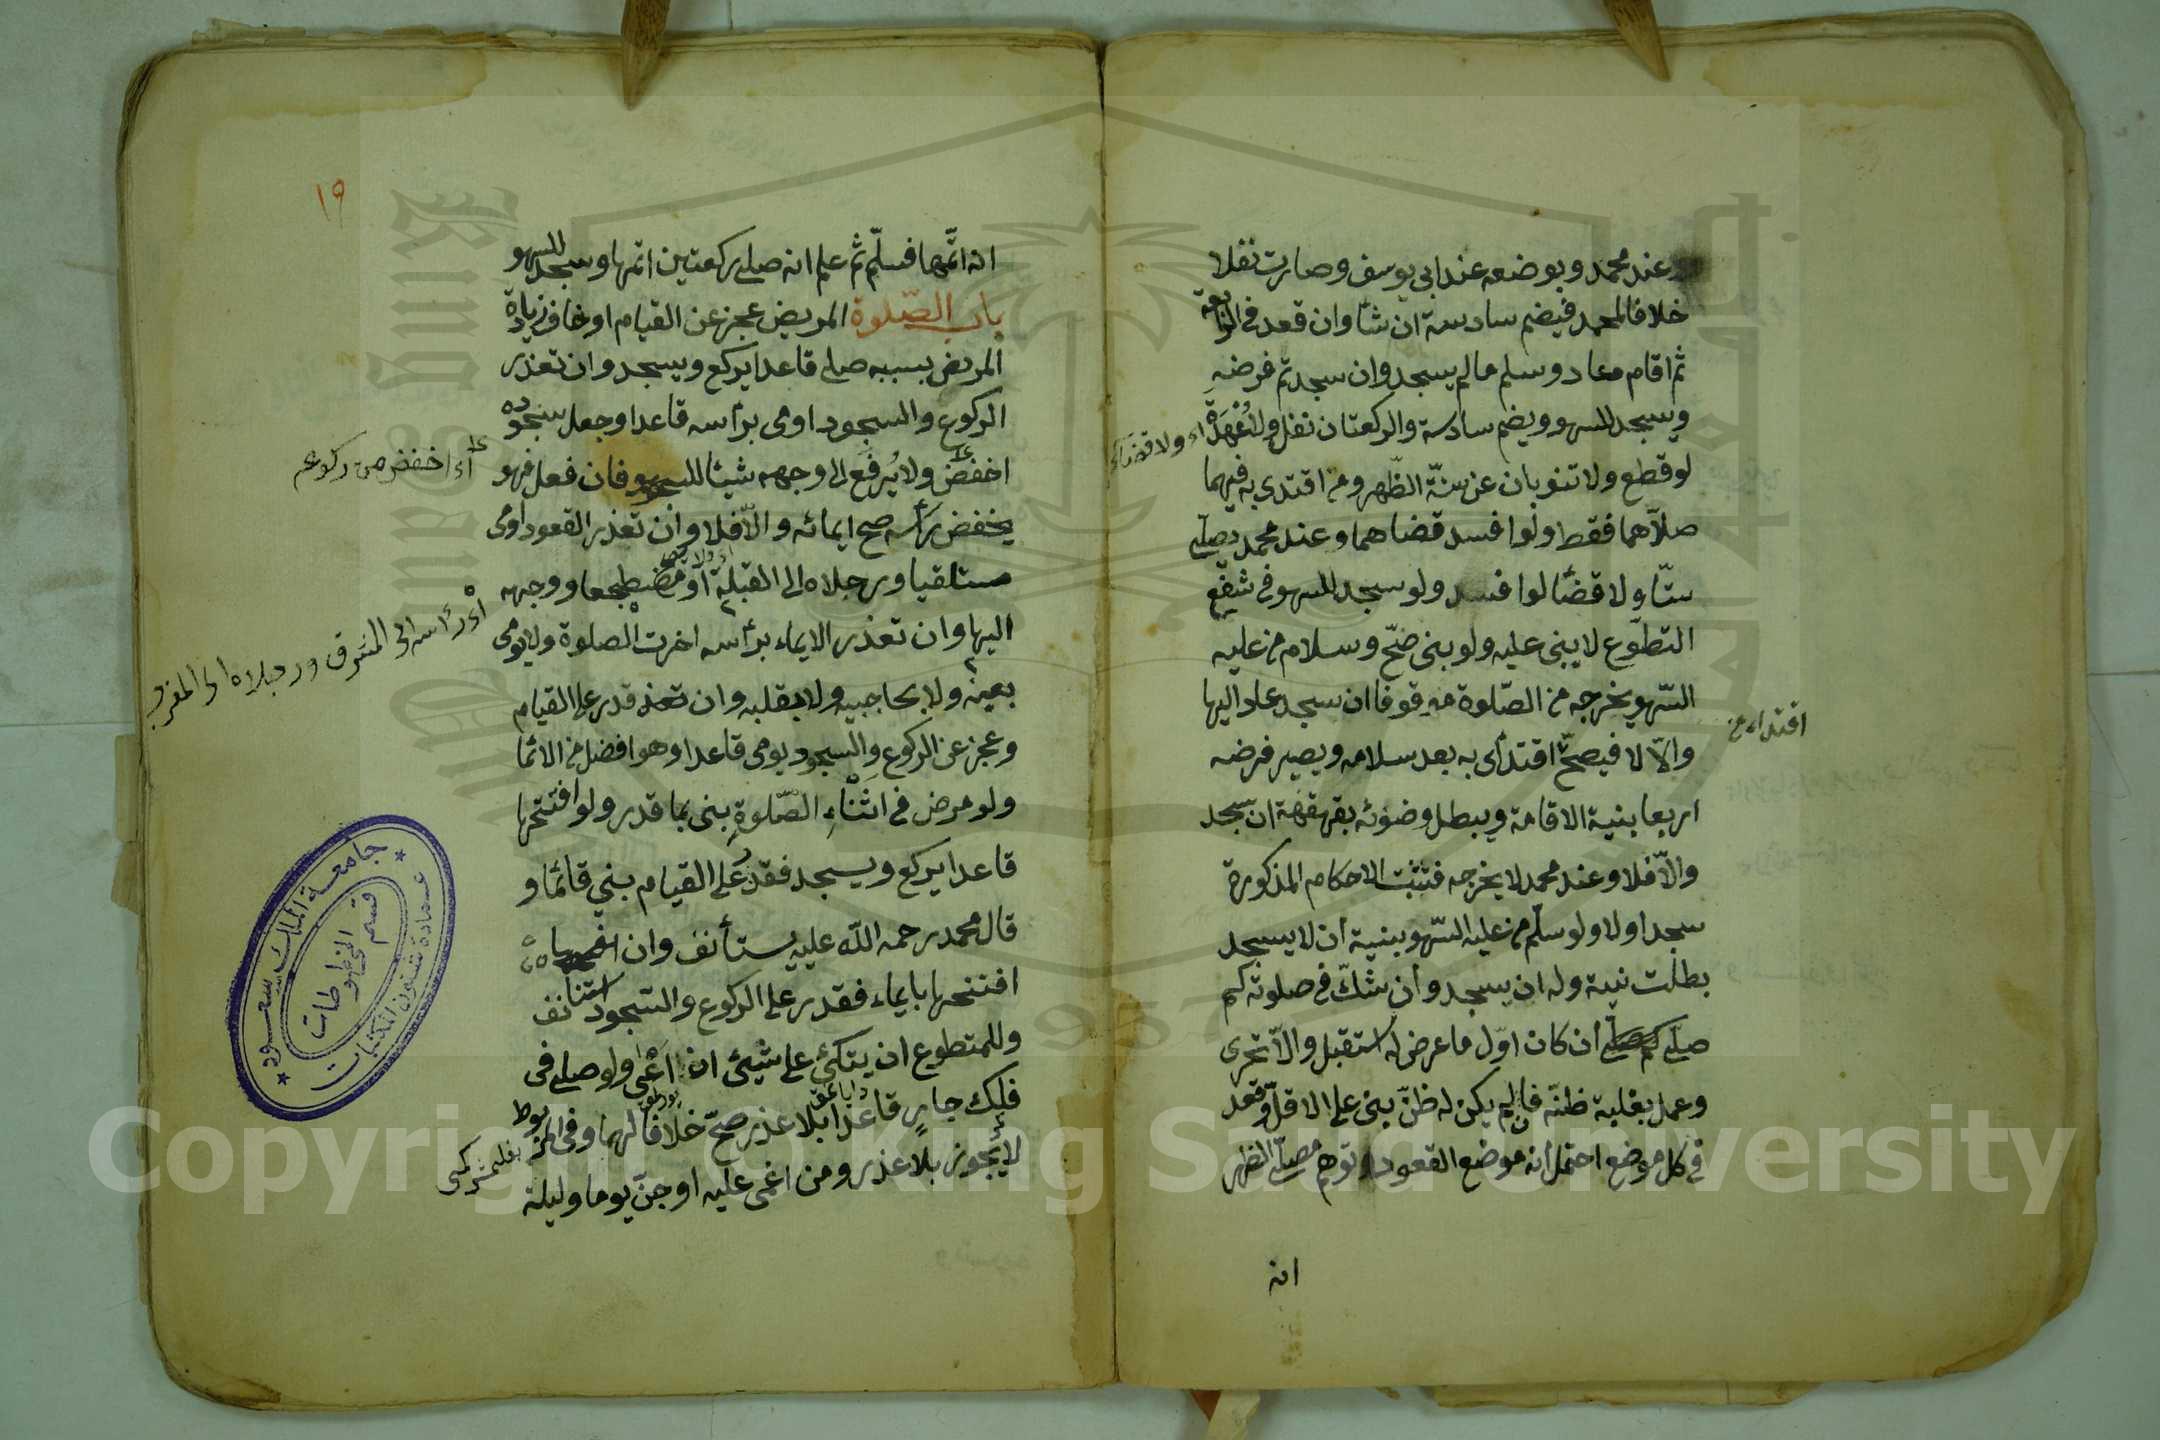 وعند محمد وبوضعه عند ابي يوسف وصارت نفلا
خلافا لمحمد فيضم سادسة ان شآ وان قعد في الرابعة
ثم اقام معاد وسلم مالم يسجد وان سجد تم فرضه
ويسجد للسهو ويضم سادسة والركعتان نفل ولا عهدة
اء ولا قضاء
لو قطع ولا تنوبان عن سنّة الظّهر ومن اقتدى به فيهما
صلاّهما فقط ولو افسد قضاهما وعند محمد يصلّي
ستّا ولا قضآ لو افسد ولو سجد للسهو في شفع
التطوّع لا يبني عليه ولو بنى صحّ وسلام من عليه
السّهو يخرجه من الصّلوة موقوفا ان سجد عاد اليها
والاّ لا فيصحّ اقتدآى به بعد سلامه ويصير فرضه
اقتداء من
اربعا بنية الاقامة ويبطل وضوئه بقهقهة ان سجد
والاّ فلا وعند محمد لا يخرجه فتثبت الاحكام المذكورة
سجد اولا ولو سلّم من عليه السّهو بنية ان لا يسجد
بطلت نيته وله ان يسجد وان شكّ في صلوته كم
صلّى ان كان اوّل ما عرض له استقبل والاّ تحرى
وعمل بغلبة ظنّه فان لم يكن له ظنّ بنى على الاقلّ وقعد
في كل موضع احتمل انه موضع القعود ولو توهم مصلّي الظهر
انه
١٩
انه اتمّها فسلّم ثم علم انه صلى ركعتين اتمها وسجد للسهو
باب الصّلوة المريض عجز عن القيام او خاف زيادة
المرض بسببه صلى قاعدا يركع ويسجد وان تعذر
الركوع والسجود اومى برأسه قاعدا وجعل سجوده
اخفض ولا يُرفع الى وجهه شيئا للسجود فان فعل فهو
اء اخفض من ركوعه
يخفض رأسه صح ايمائه والاّ فلا وان تعذر القعود اومى
مستلقيا ورجلاه الى القبلة او مضطجعا ووجهه
اى رأسه الى المشرق ورجلاه الى المغرب
اليها وان تعذر الايماء برأسه اخرت الصلوة ولا يومى
بعينه ولا بحاجبيه ولا بقلبه وان تعذر قدر على القيام
وعجز عن الركوع والسجود يومى قاعدا وهو افضل من الائما
ولو مرض في اثناء الصّلوة بنى بما قدر ولو افتتحها
قاعدا يركع ويسجد فقدر على القيام بني قائما و
قال محمد رحمه الله عليه يستأنف وان
افتتحها بايماء فقدر على الركوع والسّجود استانف
وللمتطوع ان يتكئ على شيئ ان اعى ولو صلى في
فلك جار قاعدا بلا عذر صحّ خلافا لهما وفي المربوط
لا يجوز بلا عذر ومن اغمى عليه او جنّ يوما وليلة
جامعة الملك سعود
قسم المخطوطات
عمادة شئون المكتبات
King Saud University
1957
Copyright © King Saud University